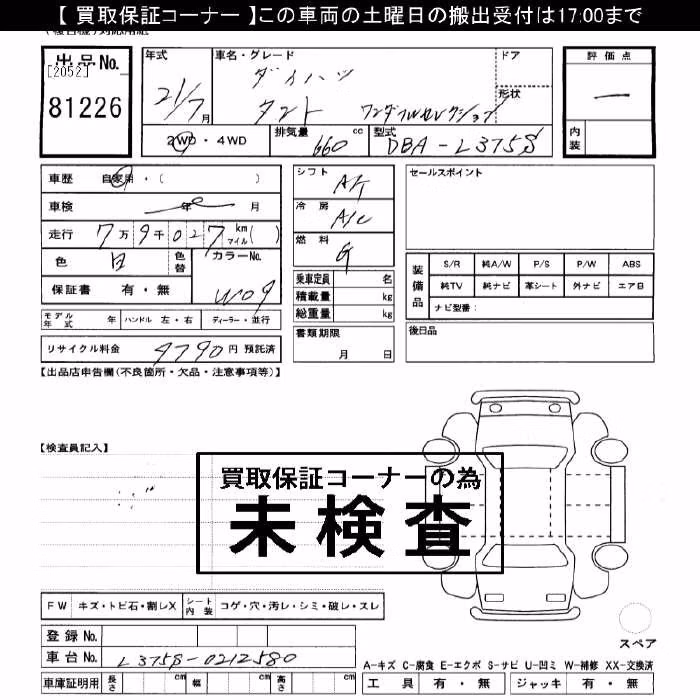 【 買取保証コーナー 】この車両の土曜日の搬出受付は17:00まで
出品No.
[2052]
81226
年式
21/7月
車名・グレード
ダイハツ
タント ワンダフルセレクション
ドア
形状
評価点
―
内装
2WD・4WD
排気量 660 cc
型式 DBA-L375S
車歴 自家用・( )
車検 年 月
走行 7万9千027 km マイル( )
色 白 色替 カラーNo. W09
保証書 有・無
モデル年式 年 ハンドル 左・右 ディーラー・並行
リサイクル料金 9790円 預託済
シフト A/T
冷房 A/C
燃料 G
乗車定員 名
積載量 kg
総重量 kg
書類期限
月 日
セールスポイント
装備品
S/R 純A/W P/S P/W ABS
純TV 純ナビ 革シート 外ナビ エアB
ナビ型番：
後日品
【出品店申告欄(不良箇所・欠品・注意事項等)】
【検査員記入】
買取保証コーナーの為
未検査
FW キズ・トビ石・割レX シート内装 コゲ・穴・汚レ・シミ・破レ・スレ
登録No.
車台No. L375S-0212580
車庫証明用 長さ cm 幅 cm 高さ cm
スペア
A-キズ C-腐食 E-エクボ S-サビ U-凹ミ W-補修 XX-交換済
工具 有・無 ジャッキ 有・無